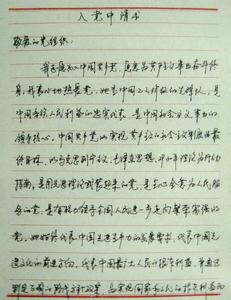 入党申请书
敬爱的党组织：
我志愿加入中国共产党，愿意为共产主义事业奋斗终
身。我衷心地热爱党，她是中国工人阶级的先锋队，是
中国各族人民利益的忠实代表，是中国社会主义事业的
领导核心。中国共产党以实现共产主义的社会制度为最
终目标，以马克思列宁主义、毛泽东思想、邓小平理论为行动
指南，是用先进理论武装起来的党，是全心全意为人民服
务的党，是有能力领导全国人民进一步走向繁荣富强的
党。她始终代表中国先进生产力的发展要求，代表中国先
进文化的前进方向，代表中国最广大人民的根本利益，并通过
制定正确的路线方针政策，为实现国家和人民的根本利益